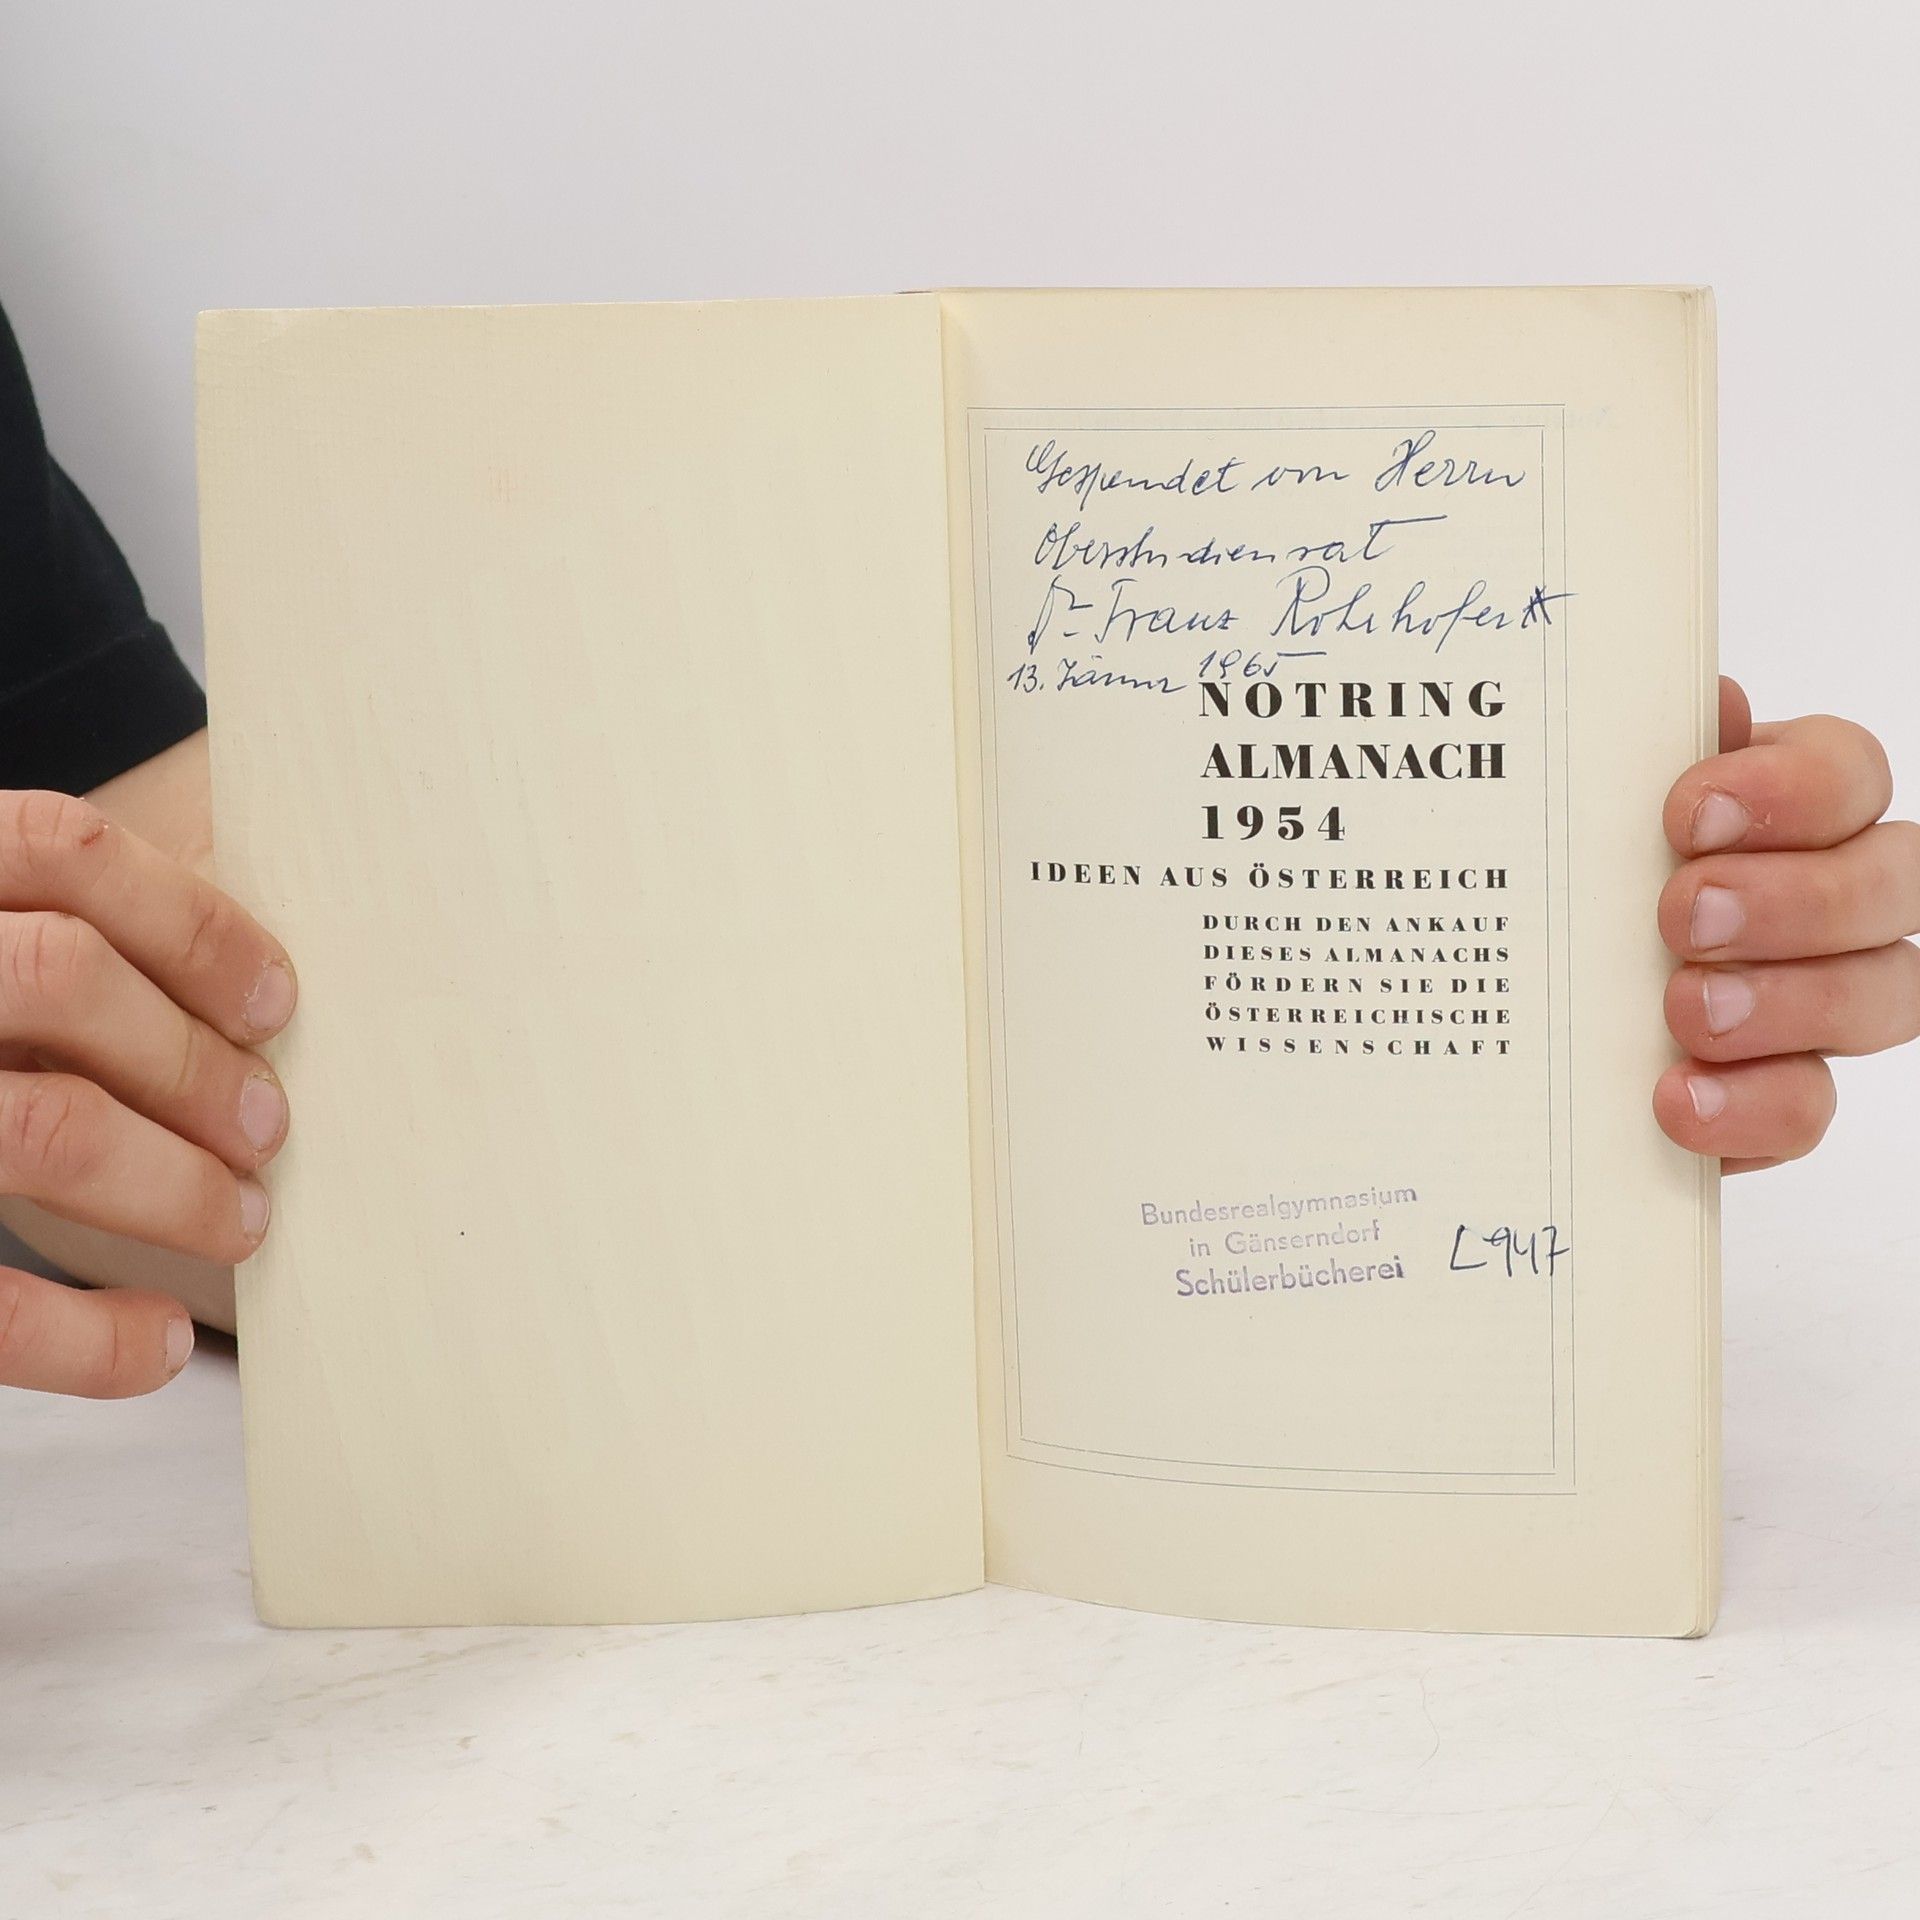 Gespendet von Herrn
Oberstudienrat
Dr. Franz Rohrhofer
13. Jänner 1965
NOTRING
ALMANACH
1954
IDEEN AUS ÖSTERREICH
DURCH DEN ANKAUF
DIESES ALMANACHS
FÖRDERN SIE DIE
ÖSTERREICHISCHE
WISSENSCHAFT
Bundesrealgymnasium
in Gänserndorf
Schülerbücherei
L 947